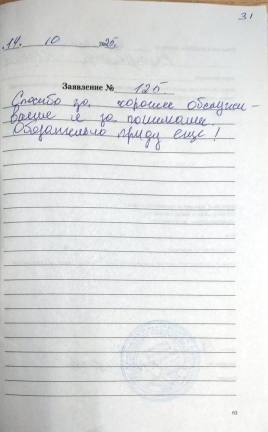 31
14. 10 2025.
Заявление № 125
Спасибо за хорошее обслужи-
вание и за понимание.
Обязательно приду ещё!
63